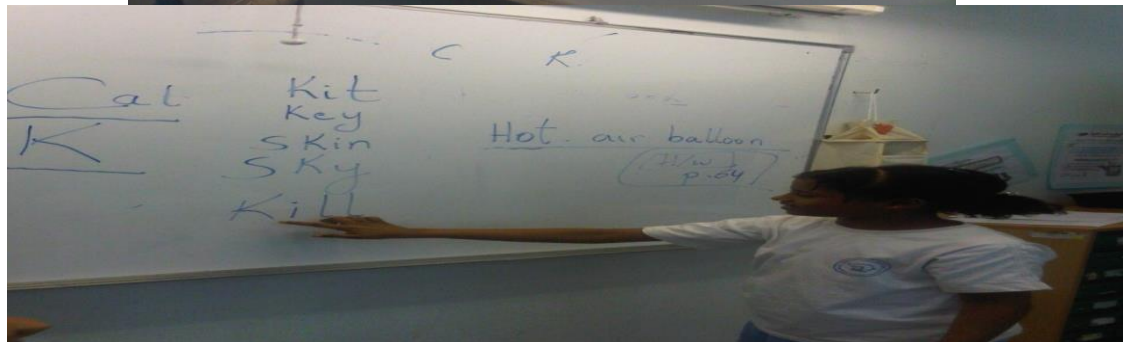 C K.
Cat
K
Kit
Key
SKin
SKy
Kill
Hot air balloon
H/w
p.64